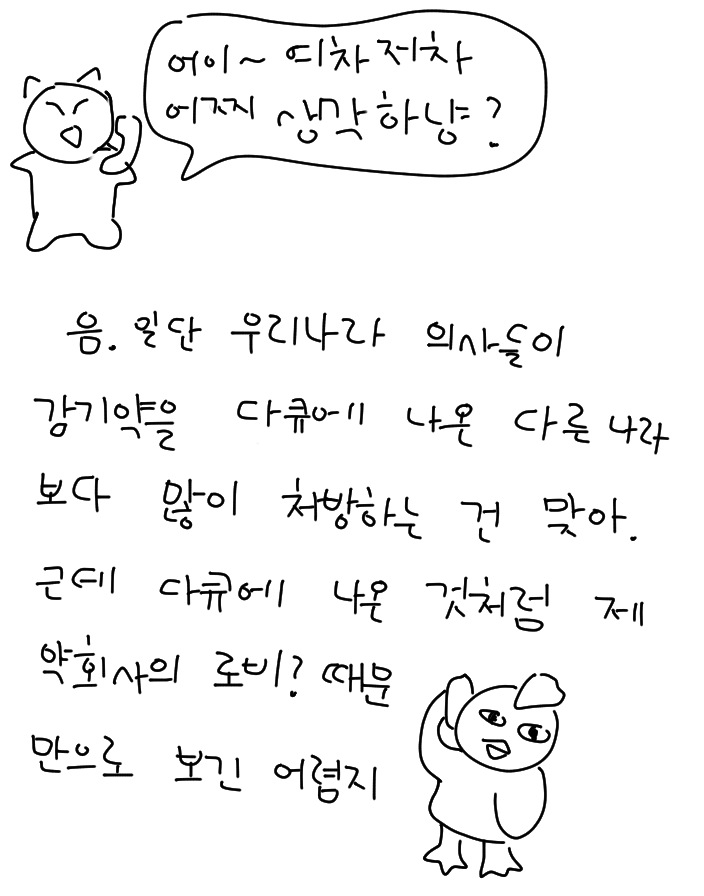 어이~ 띠차저차
어쩌지 상각하냥?
음. 일단 우리나라 의사들이
감기약을 다큐에 나온 다른 나라
보다 많이 처방하는 건 맞아.
근데 다큐에 나온 것처럼 제
약회사의 로비? 때문
만으로 보긴 어렵지